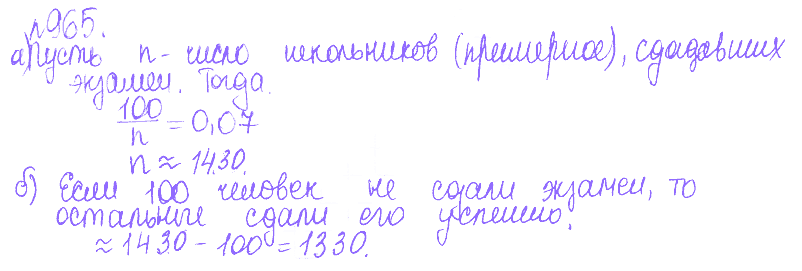 №965.
а) Пусть n - число школьников (примерное), сдававших
экзамен. Тогда.
100/n = 0,07
n ≈ 1430.
б) Если 100 человек не сдали экзамен, то
остальные сдали его успешно.
≈ 1430 - 100 = 1330.